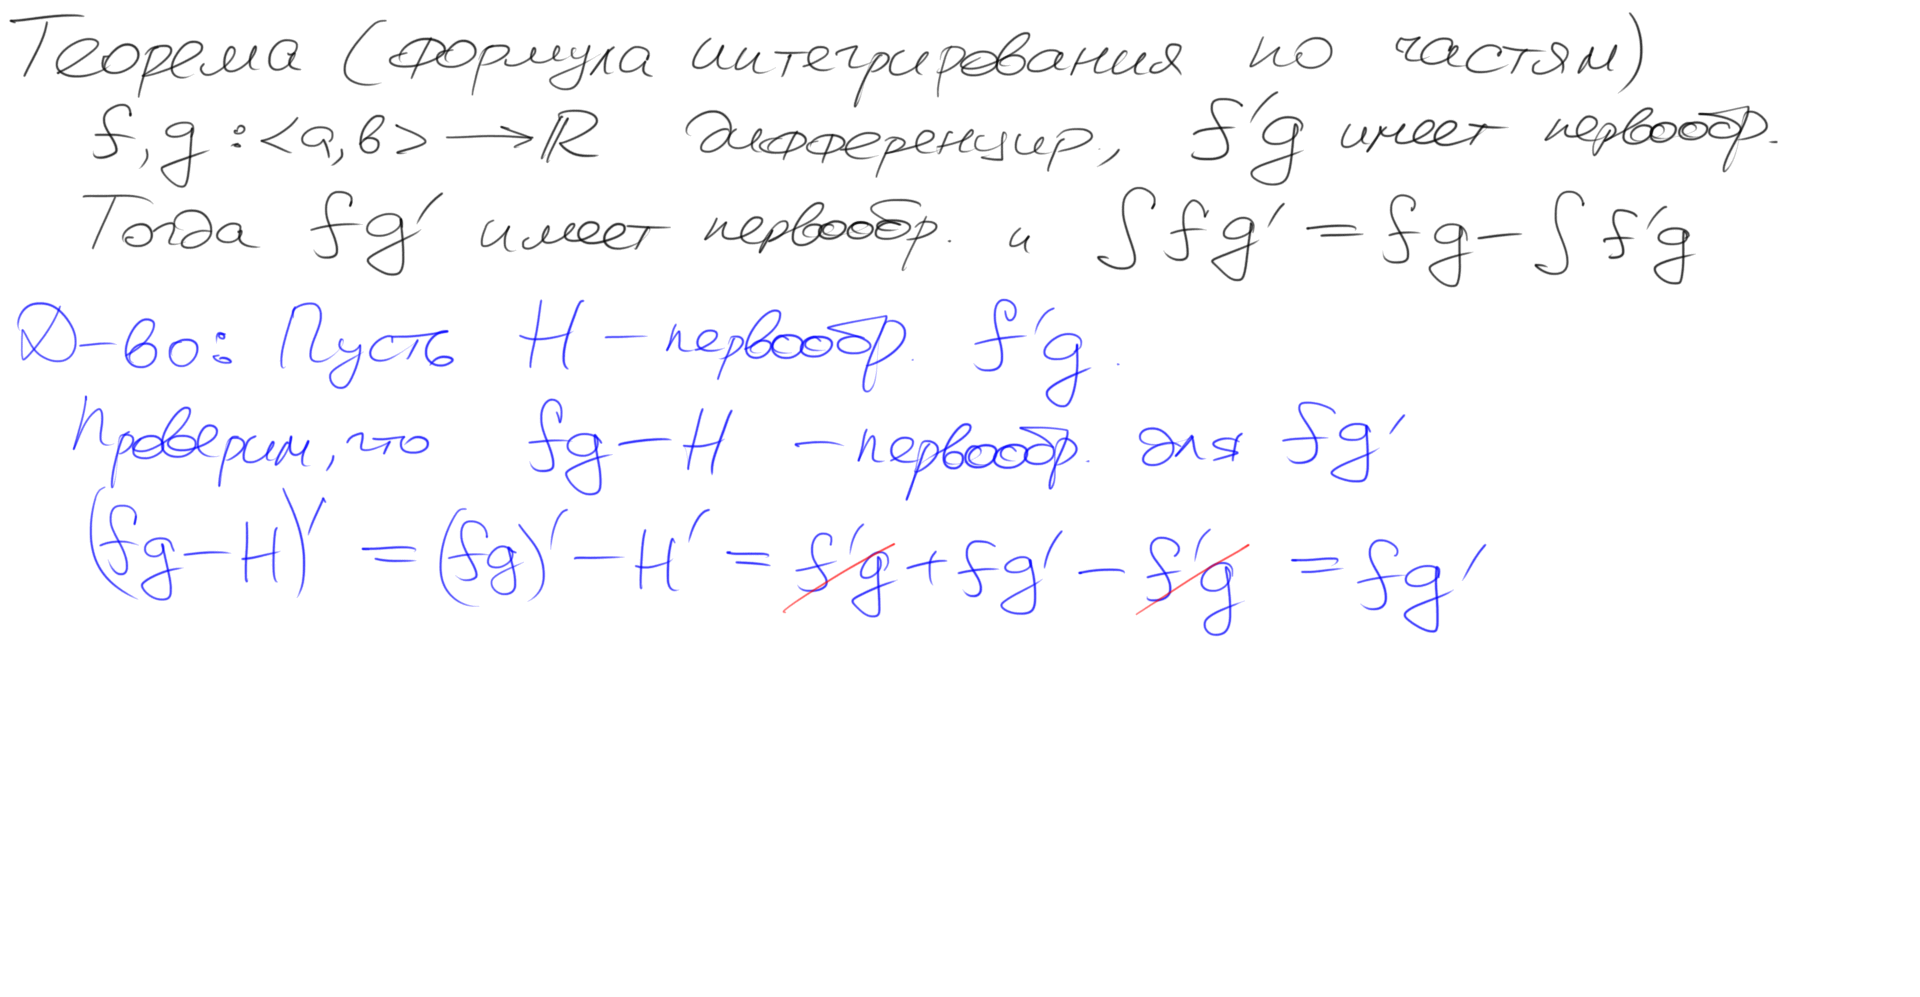 Теорема (формула интегрирования по частям)
f, g : <a, b> → ℝ дифференцир., f'g имеет первообр.
Тогда fg' имеет первообр. и ∫ fg' = fg − ∫ f'g
Д-во: Пусть H − первообр. f'g.
Проверим, что fg − H − первообр. для fg'
(fg − H)' = (fg)' − H' = f'g + fg' − f'g = fg'